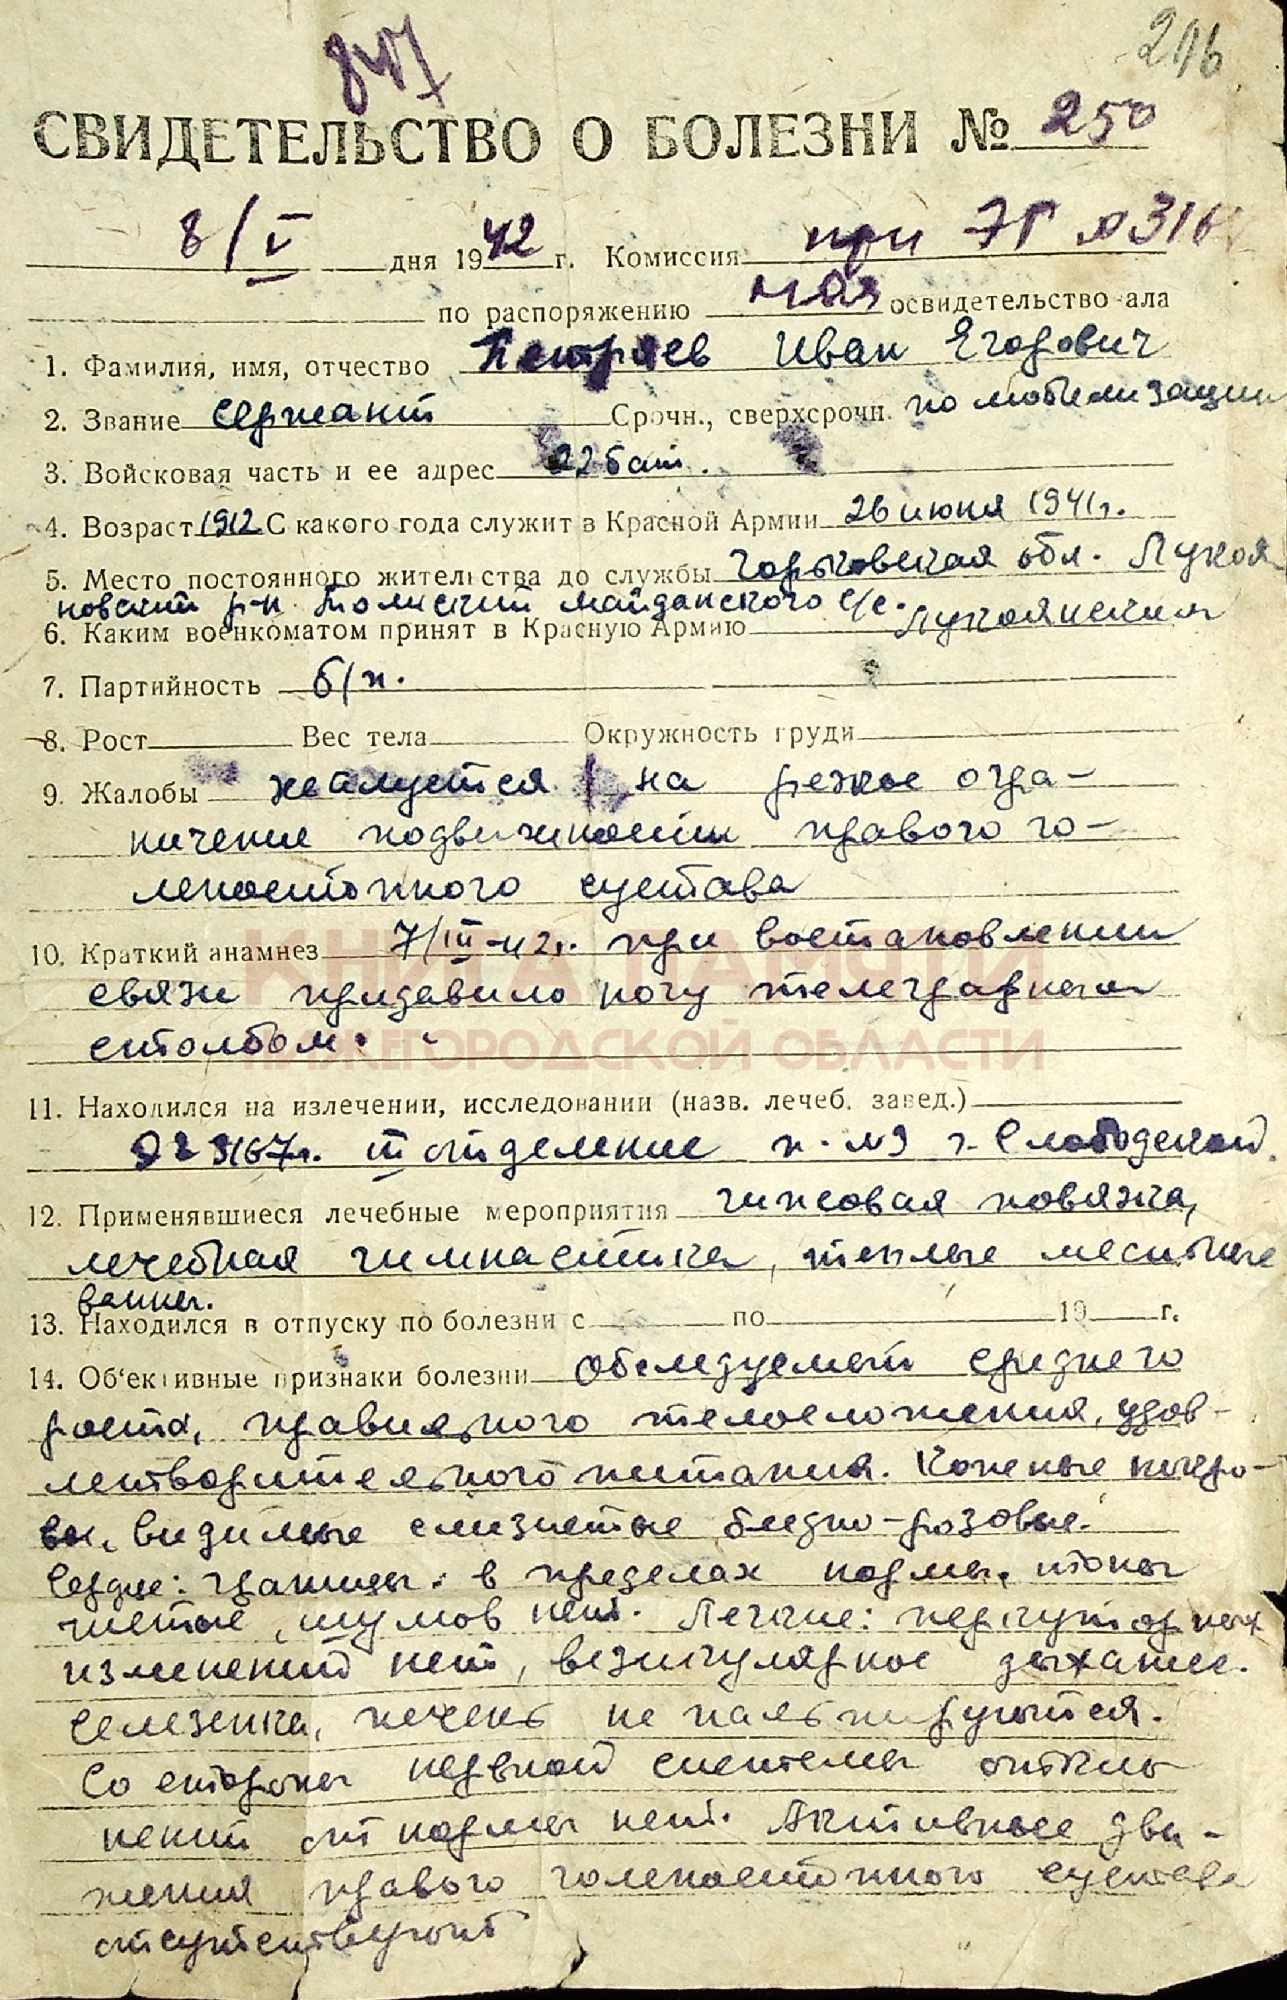 847
206
СВИДЕТЕЛЬСТВО О БОЛЕЗНИ № 250
8/V дня 1942 г. Комиссия при ЭГ № 316
по распоряжению мая освидетельствовала
1. Фамилия, имя, отчество Петряев Иван Егорович
2. Звание сержант Срочн., сверхсрочн. по мобилизации
3. Войсковая часть и ее адрес 22 бат.
4. Возраст 1912 С какого года служит в Красной Армии 26 июня 1941г.
5. Место постоянного жительства до службы Горьковская обл. Лукоя
новский р-н. Майданского с/с.
6. Каким военкоматом принят в Красную Армию Лукояновским
7. Партийность б/п.
8. Рост Вес тела Окружность груди
9. Жалобы жалуется на резкое огра-
ничение подвижности правого го-
леностопного сустава
10. Краткий анамнез 7/III-42г. при востановлении
связи придавило ногу телеграфным
столбом.
КНИГА ПАМЯТИ
НИЖЕГОРОДСКОЙ ОБЛАСТИ
11. Находился на излечении, исследовании (назв. лечеб. завед.)
ЭГ 3167г. III отделение п. №9 г. Слободской.
12. Применявшиеся лечебные мероприятия гипсовая повязка,
лечебная гимнастика, теплые месные
ванны.
13. Находился в отпуску по болезни с по 19 г.
14. Об'ективные признаки болезни Обследуемый среднего
роста, правильного телосложения, удов-
летворительного питания. Кожные покро-
вы, видимые слизистые бледно-розовые.
Сердце: границы в пределах нормы, тоны
чистые, шумов нет. Легкие: перкуторных
изменений нет, везикулярное дыхание.
Селезенка, печень не пальпируются.
Со стороны нервной системы откло
нений от нормы нет. Активные дви-
жения правого голеностопного сустава
отсутствуют